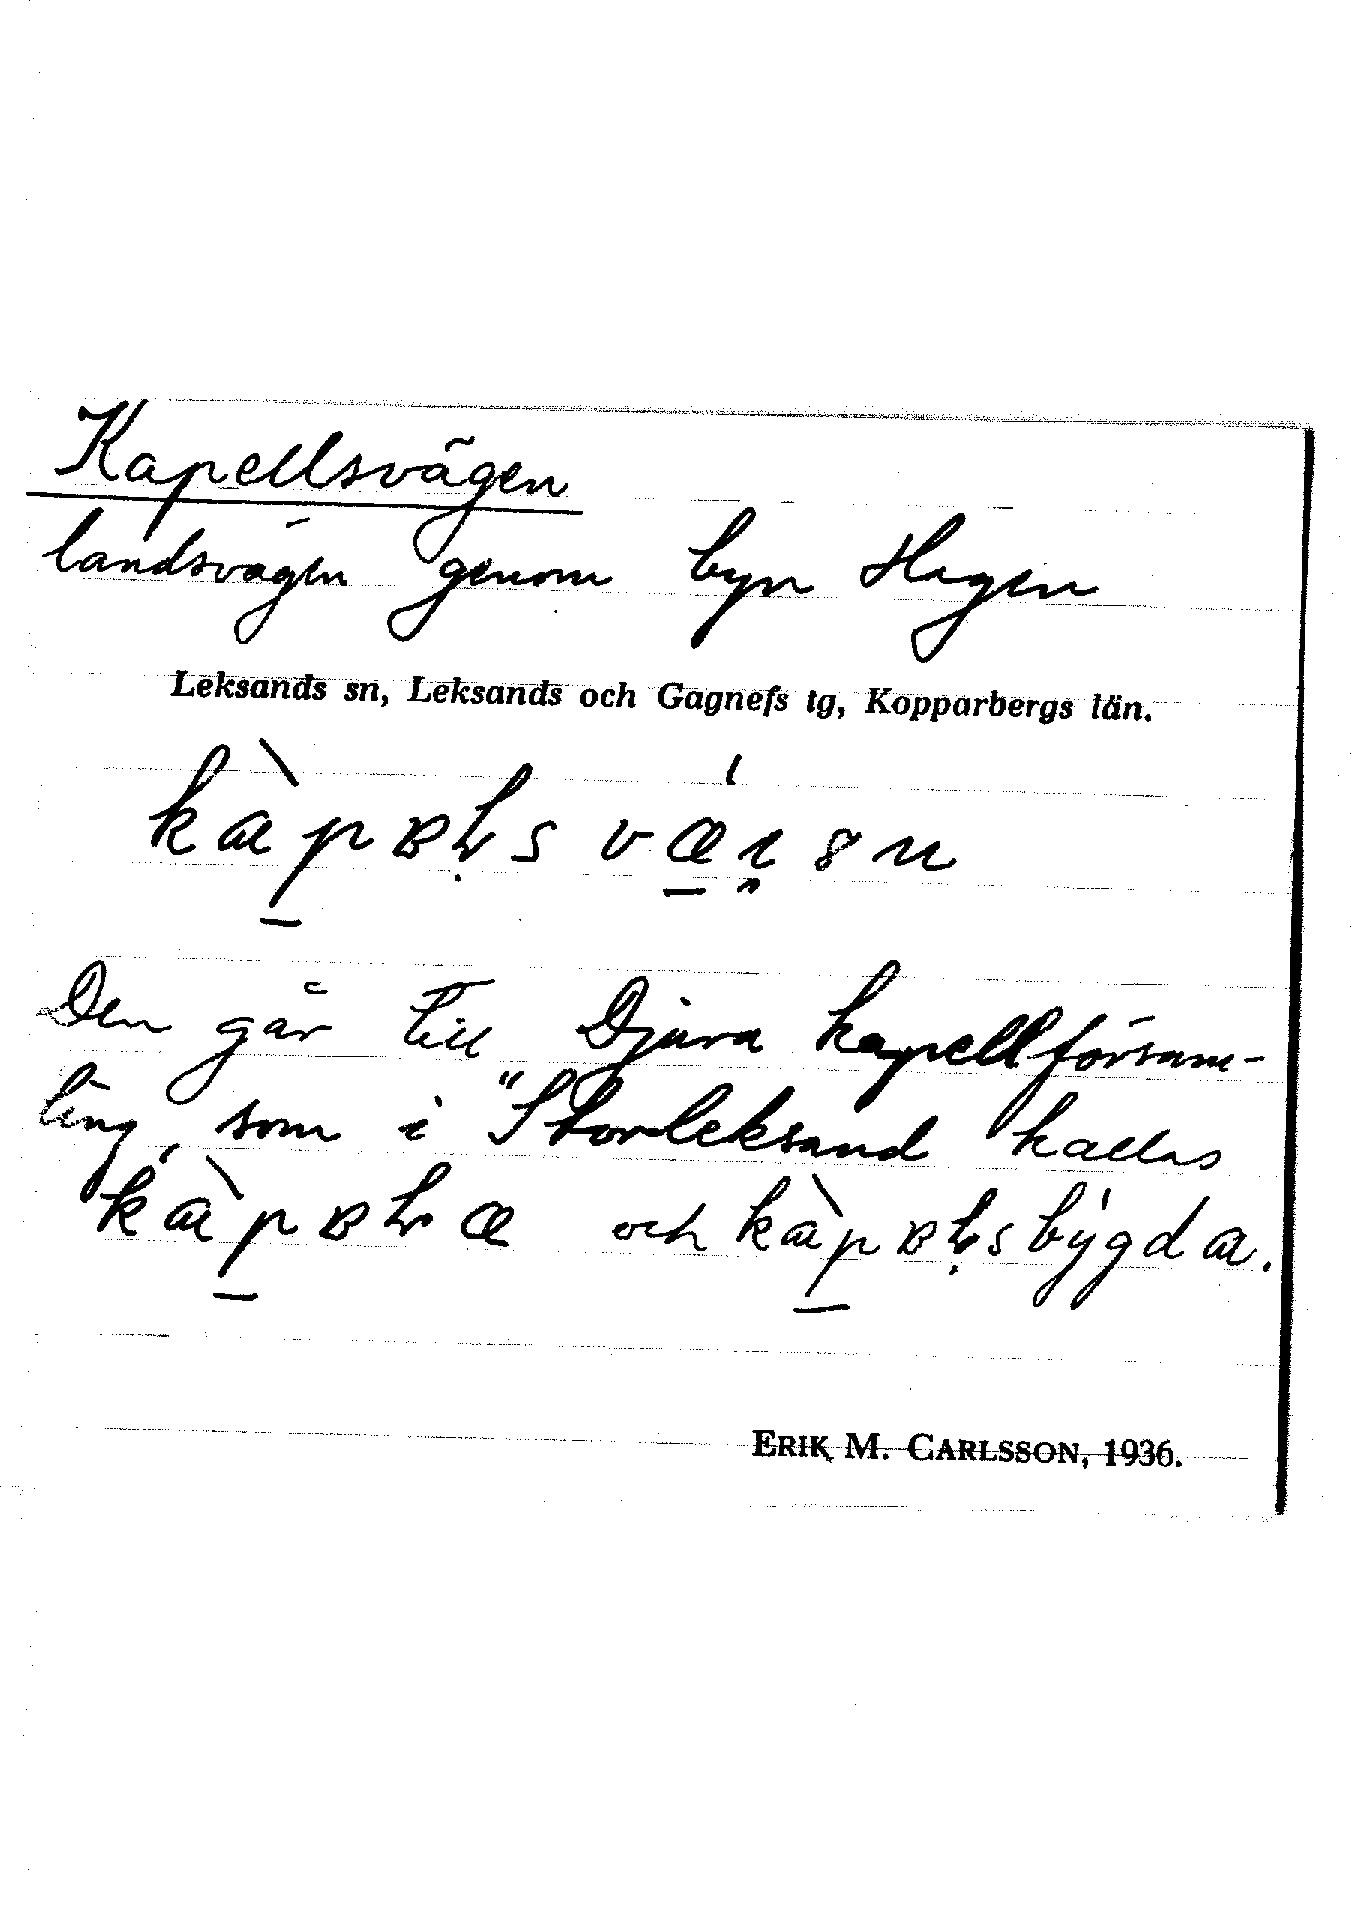 Kapellsvägen
landsvägen genom byn Hagen
Leksands sn, Leksands och Gagnefs tg, Kopparbergs län.
Den går till Djura kapellförsam-
ling, som i "Storleksand kallas
och
ERIK M. CARLSSON, 1936.